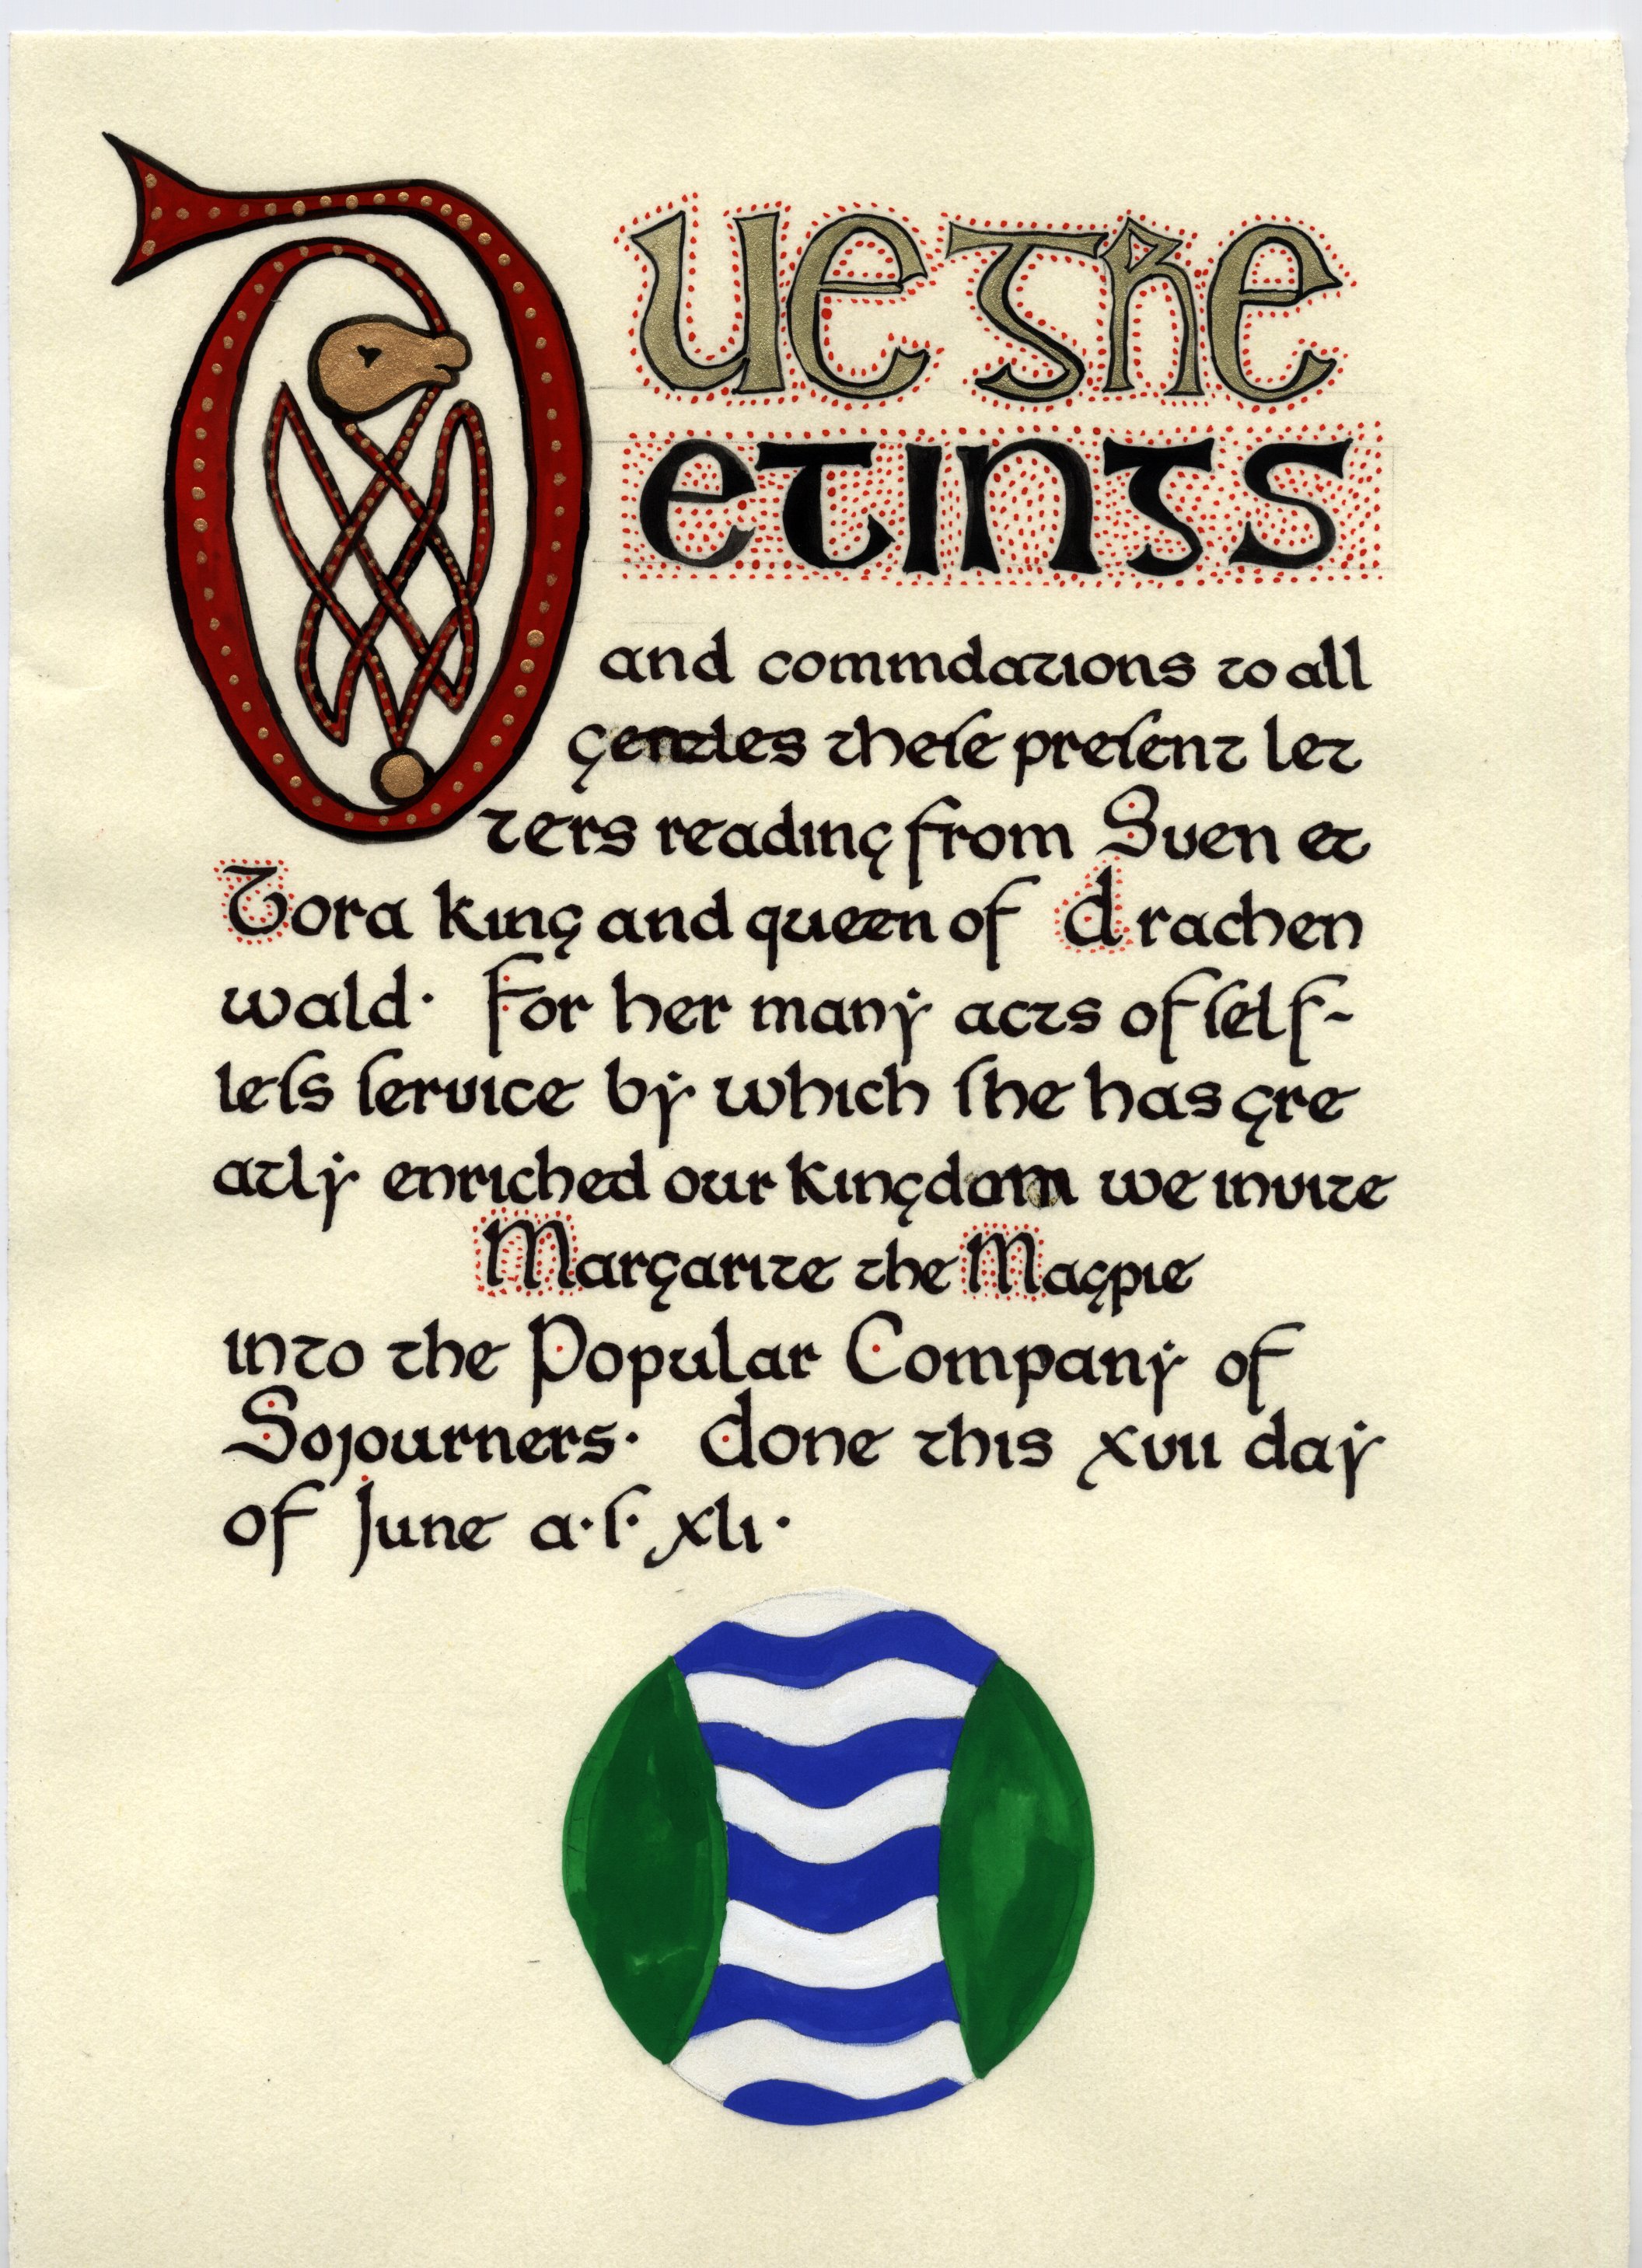 Due gre
etings
and commdations to all
gentles theſe preſent let
ters reading from Sven et
Tora king and queen of Drachen
wald· For her many acts of ſelf-
leſs ſervice by which ſhe has gre
atly enriched our kingdom we invite
Margarite the Magpie
into the Popular Company of
Sojourners· Done this xvii day
of June a·ſ· xli·